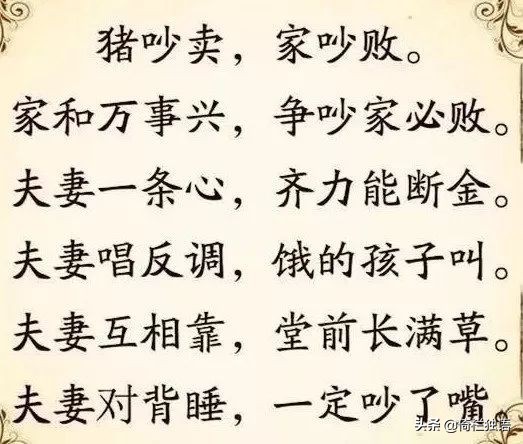 猪吵卖，家吵败。
家和万事兴，争吵家必败。
夫妻一条心，齐力能断金。
夫妻唱反调，饿的孩子叫。
夫妻互相靠，堂前长满草。
夫妻对背睡，一定吵了嘴。
头条 @倚栏独语